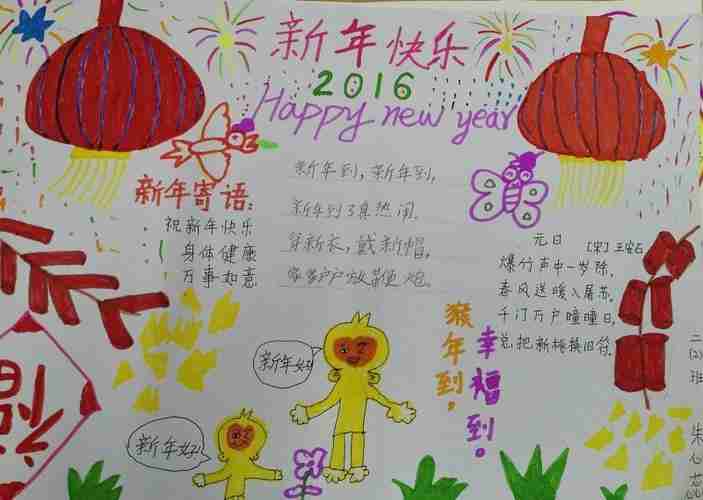 新年快乐
2016
Happy new year
新年寄语:
祝新年快乐
身体健康
万事如意
新年到,新年到,
新年到了真热闹.
穿新衣,戴新帽,
家家户户放鞭炮.
元日
[宋]王安石
爆竹声中一岁除,
春风送暖入屠苏,
千门万户曈曈日,
总把新桃换旧符.
猴年到。
幸福到。
新年好
新年好
福
二
(2)
班
朱
心